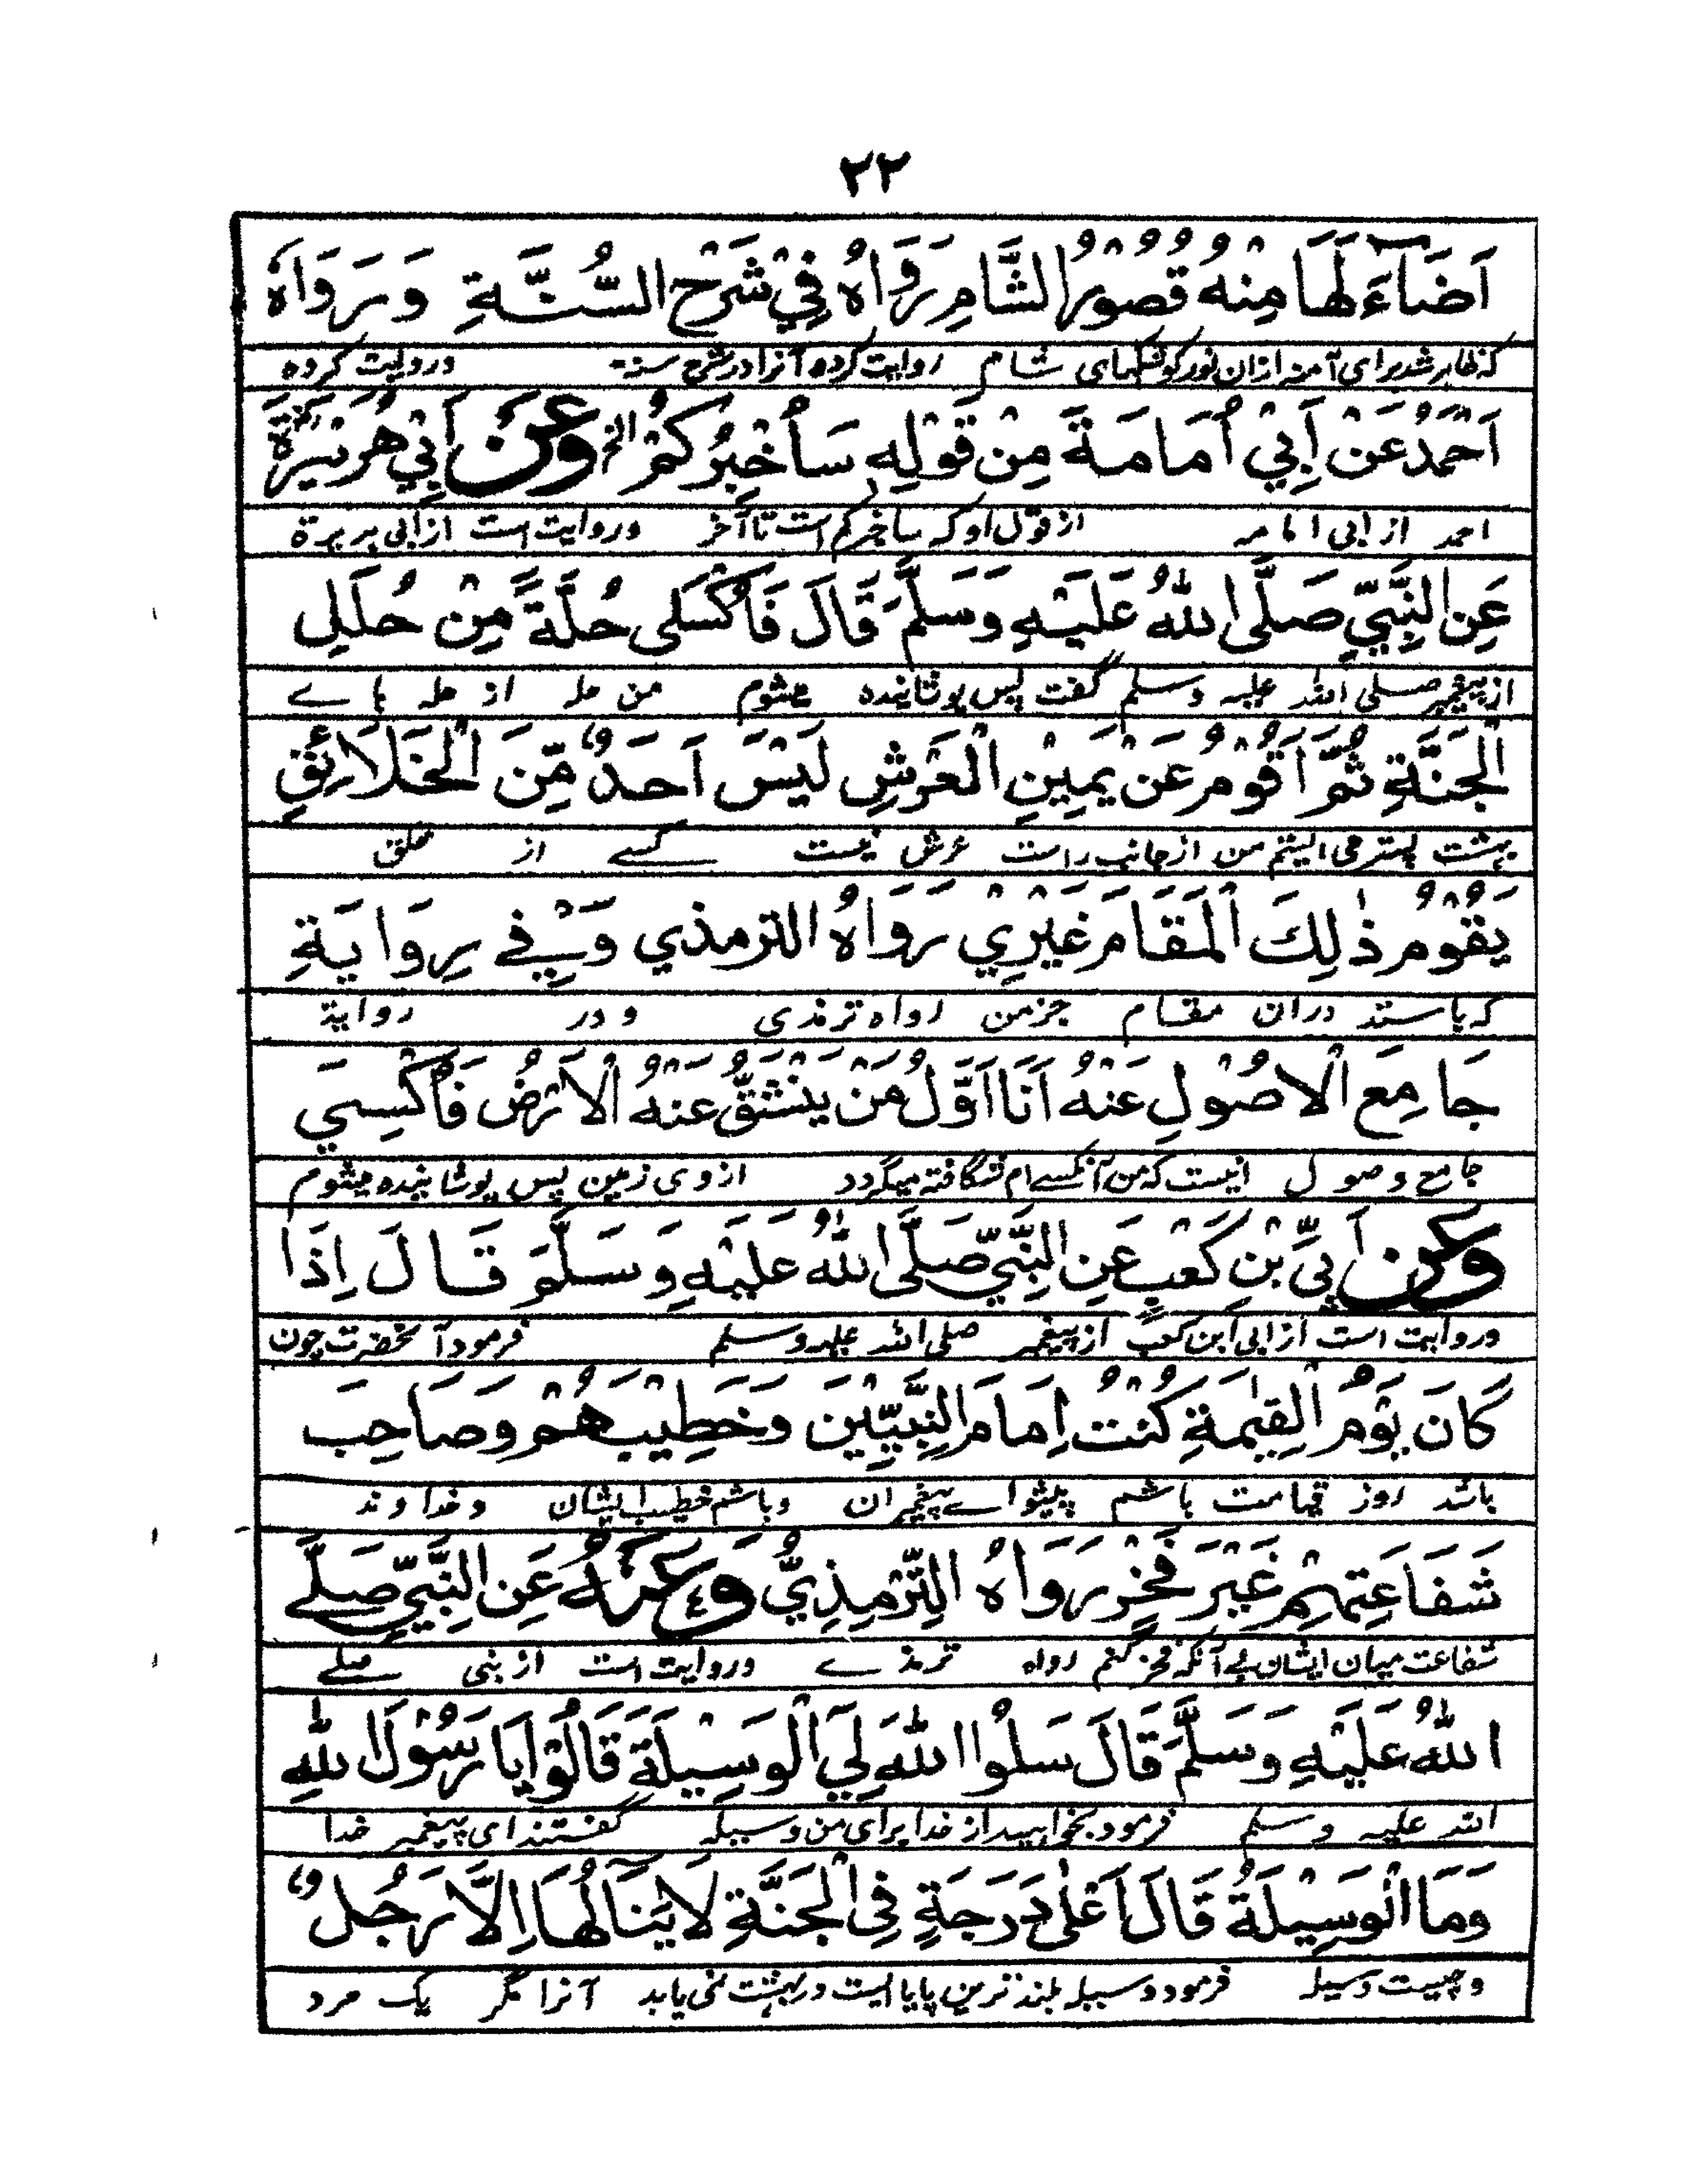 ٢٢
اَضَآءَ لَهَا مِنْهُ قُصُوْرُ الشَّامِ رَوَاهُ فِيْ شَرْحِ السُّنَّةِ وَرَوَاهُ
که ظاهر شد برای آمنه ازان نور کوشکهای شام روایت کرده آنرا در شرح سنة وروایت کرده
اَحْمَدُ عَنْ اَبِيْ اُمَامَةَ مِنْ قَوْلِهِ سَاُخْبِرُكُمْ الخ وَعَنْ اَبِيْ هُرَيْرَةَ
احمد از ابی امامه از قول او که ساخبرکم است تا آخر وروایت است از ابی هریرة
عَنِ النَّبِيِّ صَلَّى اللهُ عَلَيْهِ وَسَلَّمَ قَالَ فَاُكْسٰى حُلَّةً مِنْ حُلَلِ
از پیغمبر صلی الله علیه وسلم گفت پس پوشانیده میشوم من حله از حله های
الْجَنَّةِ ثُمَّ اَقُوْمُ عَنْ يَمِيْنِ الْعَرْشِ لَيْسَ اَحَدٌ مِّنَ الْخَلَائِقِ
بهشت پستر می ایستم من از جانب راست عرش نیست کسے از خلق
يَقُوْمُ ذٰلِكَ الْمَقَامَ غَيْرِيْ رَوَاهُ الترمذي وَفِيْ رِوَايَةِ
که باستد دران مقام جز من رواه ترمذی ودر روایة
جَامِعِ الْاُصُوْلِ عَنْهُ اَنَا اَوَّلُ مَنْ يَنْشَقُّ عَنْهُ الْاَرْضُ فَاُكْسٰي
جامع وصول اینست که من آنکسے ام شگافته میگردد ازوی زمین پس پوشانیده میشوم
وَعَنْ اُبَيِّ بْنِ كَعْبٍ عَنِ النَّبِيِّ صَلَّى اللهُ عَلَيْهِ وَسَلَّمَ قَالَ اِذَا
وروایت است از ابی ابن کعب از پیغمبر صلی الله علیه وسلم فرمود آنحضرت چون
كَانَ يَوْمُ الْقِيٰمَةِ كُنْتُ اِمَامَ النَّبِيّيْنَ وَخَطِيْبَهُمْ وَصَاحِبَ
باشد روز قیامت باشم پیشوا ے پیغمبران وباشم خطیب ایشان وخداوند
شَفَاعَتِهِمْ غَيْرَ فَخْرٍ رَوَاهُ التِّرْمِذِيُّ وَعَنْهُ عَنِ النَّبِيِّ صَلَّى
شفاعت میان ایشان بی آنکه فخر کنم رواه ترمذے وروایت است از نبی صلے
اللهُ عَلَيْهِ وَسَلَّمَ قَالَ سَلُوا اللهَ لِيَ الْوَسِيْلَةَ قَالُوْا يَا رَسُوْلَ اللهِ
الله علیه وسلم فرمود بخواهید از خدا برای من وسیله گفتند ای پیغمبر خدا
وَمَا الْوَسِيْلَةُ قَالَ اَعْلٰى دَرَجَةٍ فِي الْجَنَّةِ لَا يَنَالُهَا اِلَّا رَجُلٌ
وچیست وسیله فرمود وسیله بلند ترین پایا است در بهشت نمی یابد آنرا مگر یک مرد